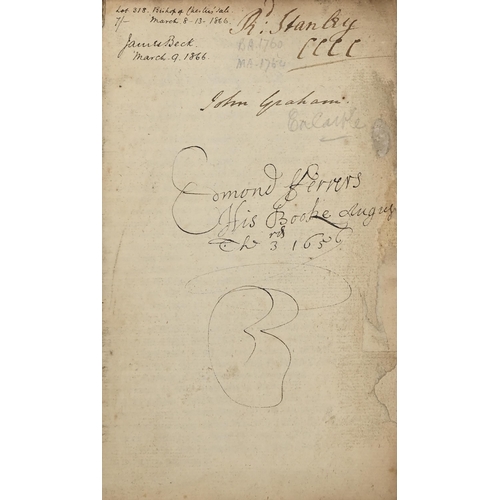 Lot 318. Bishop of Chester's sale.
7/- March 8-13. 1866.
James Beck.
March. 9. 1866.
R: Stanley
CCCC
BA. 1760
MA. 1764
John Graham.
Edmond fferrers
His Booke August
The 3rd 1656